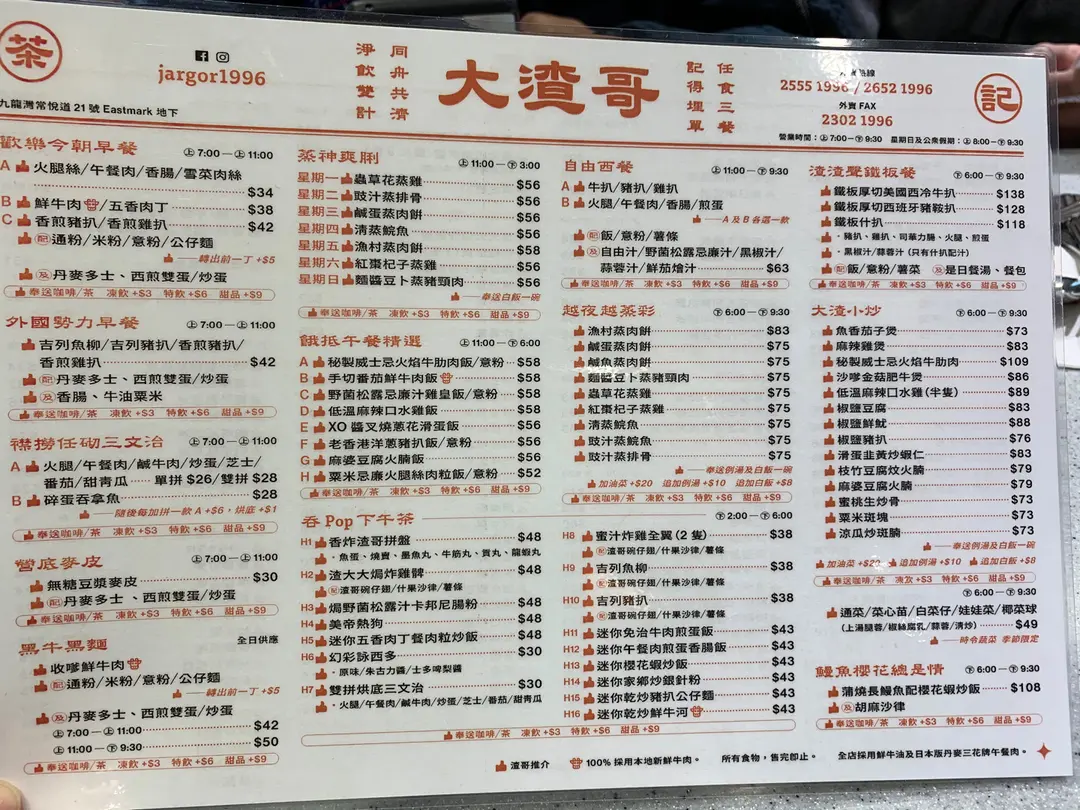 茶
jargor1996
九龍灣常悅道 21 號 Eastmark 地下
淨飲雙計
同舟共濟
大渣哥
記得埋單
任食三餐
2555 1996 / 2652 1996
外賣 FAX
2302 1996
記
營業時間：上 7:00—下 9:30 星期日及公衆假期：上 8:00—下 9:30
歡樂今朝早餐 上 7:00—上 11:00
A 火腿絲/午餐肉/香腸/雪菜肉絲
$34
B 鮮牛肉/五香肉丁 $38
C 香煎豬扒/香煎雞扒 $42
配 通粉/米粉/意粉/公仔麵
轉出前一丁 +$5
及 丹麥多士、西煎雙蛋/炒蛋
奉送咖啡/茶 凍飲 +$3 特飲 +$6 甜品 +$9
外國勢力早餐 上 7:00—上 11:00
吉列魚柳/吉列豬扒/香煎豬扒/
香煎雞扒 $42
配 丹麥多士、西煎雙蛋/炒蛋
及 香腸、牛油粟米
奉送咖啡/茶 凍飲 +$3 特飲 +$6 甜品 +$9
襟撈任砌三文治 上 7:00—上 11:00
A 火腿/午餐肉/鹹牛肉/炒蛋/芝士/
番茄/甜青瓜 單拼 $26/雙拼 $28
B 碎蛋吞拿魚 $28
隨後每加拼一款 A +$6，烘底 +$1
奉送咖啡/茶 凍飲 +$3 特飲 +$6 甜品 +$9
營底麥皮 上 7:00—上 11:00
無糖豆漿麥皮 $30
配 丹麥多士、西煎雙蛋/炒蛋
奉送咖啡/茶 凍飲 +$3 特飲 +$6 甜品 +$9
黑牛黑麵 全日供應
收嗲鮮牛肉
配 通粉/米粉/意粉/公仔麵
轉出前一丁 +$5
及 丹麥多士、西煎雙蛋/炒蛋
上 7:00—上 11:00 $42
上 11:00—下 9:30 $50
奉送咖啡/茶 凍飲 +$3 特飲 +$6 甜品 +$9
蒸神爽脷 上 11:00—下 3:00
星期一 蟲草花蒸雞 $56
星期二 豉汁蒸排骨 $56
星期三 鹹蛋蒸肉餅 $56
星期四 清蒸鯇魚 $56
星期五 漁村蒸肉餅 $58
星期六 紅棗杞子蒸雞 $56
星期日 麵醬豆卜蒸豬頸肉 $56
奉送白飯一碗
奉送咖啡/茶 凍飲 +$3 特飲 +$6 甜品 +$9
餓抵午餐精選 上 11:00—下 6:00
A 秘製威士忌火焰牛肋肉飯/意粉 $58
B 手切番茄鮮牛肉飯 $58
C 野菌松露忌廉汁雞皇飯/意粉 $58
D 低溫麻辣口水雞飯 $58
E XO 醬叉燒蔥花滑蛋飯 $56
F 老香港洋蔥豬扒飯/意粉 $58
G 麻婆豆腐火腩飯 $56
H 粟米忌廉火腿絲肉粒飯/意粉 $52
奉送咖啡/茶 凍飲 +$3 特飲 +$6 甜品 +$9
自由西餐 上 11:00—下 9:30
A 牛扒/豬扒/雞扒
B 火腿/午餐肉/香腸/煎蛋
A 及 B 各選一款
配 飯/意粉/薯條
及 自由汁/野菌松露忌廉汁/黑椒汁/
蒜蓉汁/鮮茄燴汁 $63
奉送咖啡/茶 凍飲 +$3 特飲 +$6 甜品 +$9
越夜越蒸彩 下 6:00—下 9:30
漁村蒸肉餅 $83
鹹蛋蒸肉餅 $75
鹹魚蒸肉餅 $75
麵醬豆卜蒸豬頸肉 $75
蟲草花蒸雞 $75
紅棗杞子蒸雞 $75
清蒸鯇魚 $75
豉汁蒸鯇魚 $75
豉汁蒸排骨 $75
奉送例湯及白飯一碗
加油菜 +$20 追加例湯 +$10 追加白飯 +$8
奉送咖啡/茶 凍飲 +$3 特飲 +$6 甜品 +$9
渣渣聲鐵板餐 下 6:00—下 9:30
鐵板厚切美國西冷牛扒 $138
鐵板厚切西班牙豬鞍扒 $128
鐵板什扒 $118
・豬扒、雞扒、司華力腸、火腿、煎蛋
・黑椒汁/蒜蓉汁（只有什扒配汁）
配 飯/意粉/薯菜 及 是日餐湯、餐包
奉送咖啡/茶 凍飲 +$3 特飲 +$6 甜品 +$9
大渣小炒 下 6:00—下 9:30
魚香茄子煲 $73
麻辣雞煲 $83
秘製威士忌火焰牛肋肉 $109
沙嗲金菇肥牛煲 $86
低溫麻辣口水雞（半隻） $89
椒鹽豆腐 $83
椒鹽鮮魷 $88
椒鹽豬扒 $76
滑蛋韭黃炒蝦仁 $83
枝竹豆腐炆火腩 $79
麻婆豆腐火腩 $79
蜜桃生炒骨 $73
粟米斑塊 $73
涼瓜炒斑腩 $73
奉送例湯及白飯一碗
加油菜 +$20 追加例湯 +$10 追加白飯 +$8
奉送咖啡/茶 凍飲 +$3 特飲 +$6 甜品 +$9
下 6:00—下 9:30
通菜/菜心苗/白菜仔/娃娃菜/椰菜球
（上湯腿蓉/椒絲腐乳/蒜蓉/清炒） $49
時令蔬菜 季節限定
鰻魚櫻花總是情 下 6:00—下 9:30
蒲燒長鰻魚配櫻花蝦炒飯 $108
及 胡麻沙律
奉送咖啡/茶 凍飲 +$3 特飲 +$6 甜品 +$9
吞 Pop 下午茶 下 2:00—下 6:00
H1 香炸渣哥拼盤 $48
・魚蛋、燒賣、墨魚丸、牛筋丸、貢丸、龍蝦丸
H2 渣大大焗炸雞髀 $48
配 渣哥碗仔翅/什果沙律/薯條
H3 焗野菌松露汁卡邦尼腸粉 $48
H4 美帝熱狗 $48
H5 迷你五香肉丁餐肉粒炒飯 $48
H6 幻彩詠西多 $30
・原味/朱古力醬/士多啤梨醬
H7 雙拼烘底三文治 $30
・火腿/午餐肉/鹹牛肉/炒蛋/芝士/番茄/甜青瓜
H8 蜜汁炸雞全翼（2 隻） $38
配 渣哥碗仔翅/什果沙律/薯條
H9 吉列魚柳 $38
配 渣哥碗仔翅/什果沙律/薯條
H10 吉列豬扒 $38
配 渣哥碗仔翅/什果沙律/薯條
H11 迷你免治牛肉煎蛋飯 $43
H12 迷你午餐肉煎蛋香腸飯 $43
H13 迷你櫻花蝦炒飯 $43
H14 迷你家鄉炒銀針粉 $43
H15 迷你乾炒豬扒公仔麵 $43
H16 迷你乾炒鮮牛河 $43
奉送咖啡/茶 凍飲 +$3 特飲 +$6 甜品 +$9
渣哥推介 100% 採用本地新鮮牛肉。 所有食物，售完即止。 全店採用鮮牛油及日本版丹麥三花牌午餐肉。